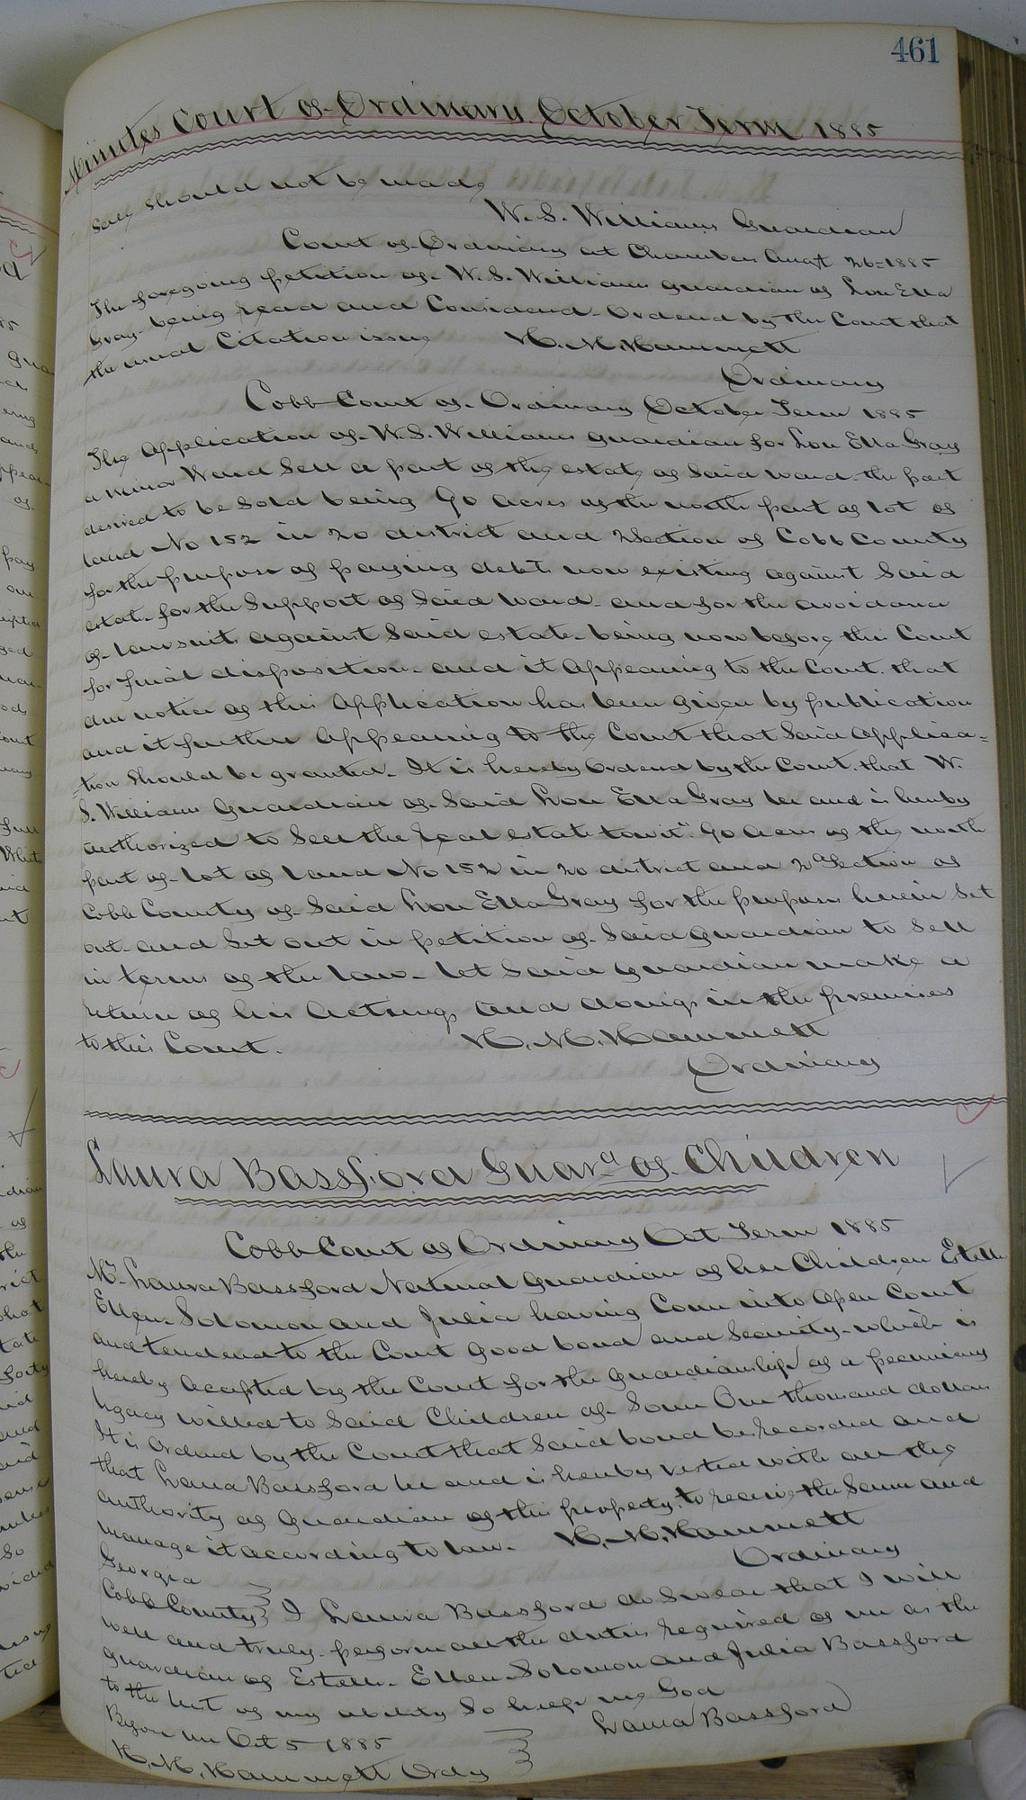 461
Minutes Court of Ordinary October Term 1885
Sale should not be made
W. S. Williams Guardian
Court of Ordinary at Chambers Augst 26=1885
The foregoing petition of W. S. Williams guardian of Lou Ella
Gray being read and Considered Ordered by the Court that
the usual Citation issue H. M. Hammett
Ordinary
Cobb Court of Ordinary October Term 1885
The Application of W. S. Williams guardian for Lou Ella Gray
a minor Ward Sell a part of the estate of Said ward the part
desired to be Sold being 90 acres of the north part of lot of
land No 152 in 20 district and 2 Section of Cobb County
for the purpose of paying debts now existing against Said
estate for the Support of Said Ward and for the avoidance
of lawsuits against Said estate being now before this Court
for final disposition and it appearing to the Court that
due notice of this Application has been given by publication
and it further appearing to the Court that Said applica=
=tion Should be granted It is hereby Ordered by the Court that W.
S. Williams Guardian of Said Lou Ella Gray be and is hereby
authorized to Sell the real estate towit 90 acres of the north
part of lot of land No 152 in 20 district and 2d Section of
Cobb County of Said Lou Ella Gray for the purposes herein Set
out and Set out in petition of Said guardian to Sell
in terms of the law let Said guardian make a
return of his actings and doings in the premises
to this Court. H. M. Hammett
Ordinary
Laura Bassford Guard of Children
Cobb Court of Ordinary Oct Term 1885
Mrs Laura Bassford Natural guardian of her Children Estelle
Ellen Solomon and Julia having Come into Open Court
and tendered to the Court good bond and Security which is
hereby accepted by the Court for the guardianship of a pecuniary
legacy willed to Said Children of Some One thousand dollars
It is Ordered by the Court that Said bond be recorded and
that Laura Bassford be and is hereby vested with all the
authority of Guardian of this property to receive the Same and
manage it according to law. H. M. Hammett
Ordinary
Georgia
Cobb County I Laura Bassford do Swear that I will
well and truly perform all the duties required of me as the
guardian of Estelle Ellen Solomon and Julia Bassford
to the best of my ability So help me God
Before me Oct 5 1885 Laura Bassford
H. M. Hammett Ordy